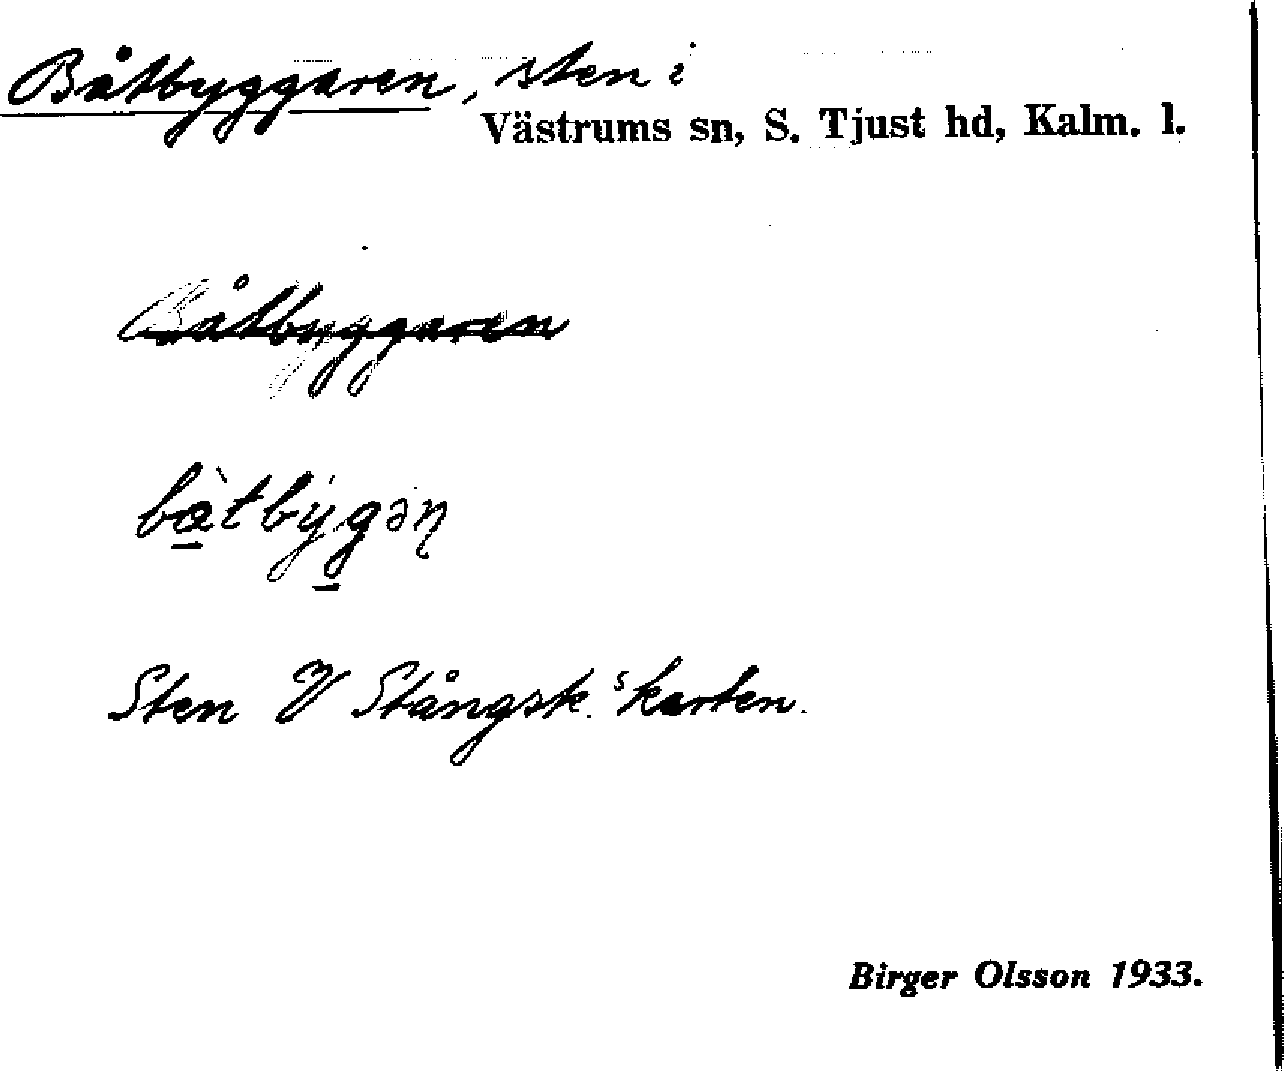 Båtbyggaren, sten i
Västrums sn, S. Tjust hd, Kalm. l.
Båtbyggaren
Sten V Stångsk.s karten.
Birger Olsson 1933.